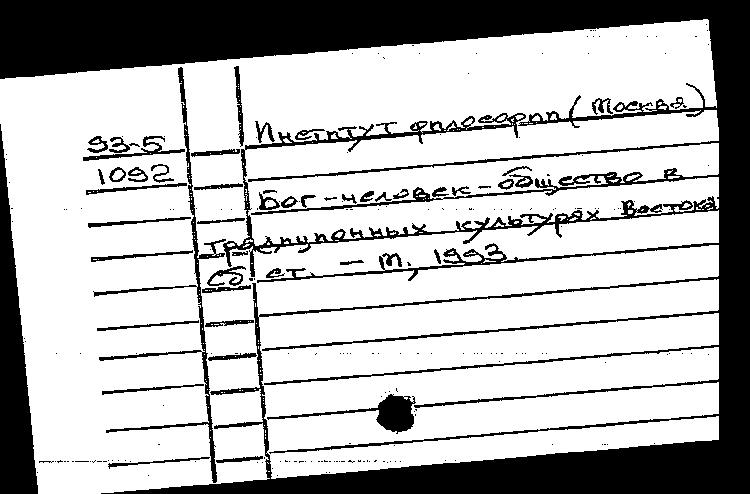 93-5
1092
Институт философии (Москва)
Бог-человек-общество в
традиционных культурах Востока
Сб. ст. — М, 1993.